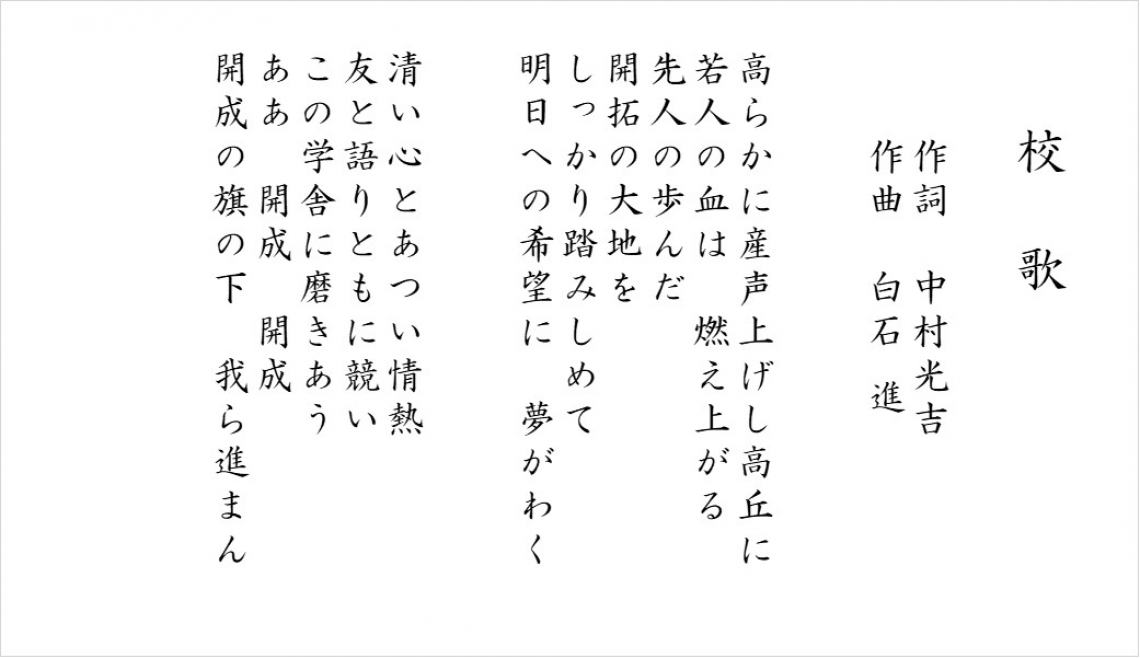 校　歌
作詞　中村光吉
作曲　白石　進
高らかに産声上げし高丘に
若人の血は　燃え上がる
先人の歩んだ
開拓の大地を
しっかり踏みしめて
明日への希望に　夢がわく
清い心とあつい情熱
友と語りともに競い
この学舎に磨きあう
ああ　開成　開成
開成の旗の下　我ら進まん